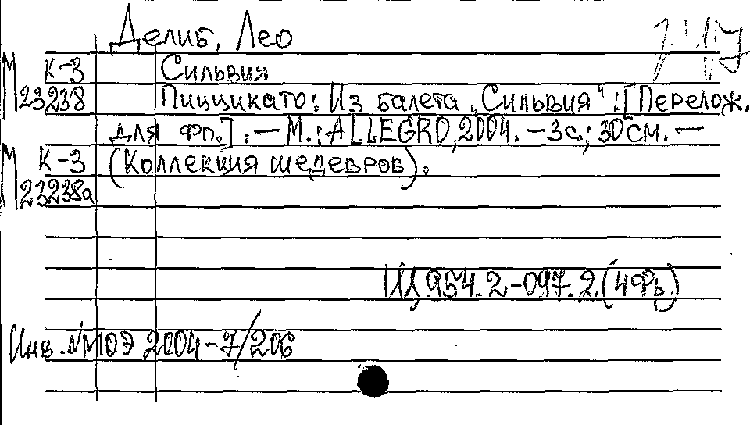 Делиб, Лео
М К-3 Сильвия
23238 Пиццикато: Из балета "Сильвия": [Перелож.
для фп.]. – М.: ALLEGRO, 2004. – 3 с.; 30 см. –
М К-3 (Коллекция шедевров).
23238а
Щ 954.2-097.2 (4Фь)
Инв. № МОЭ 2004-7/206